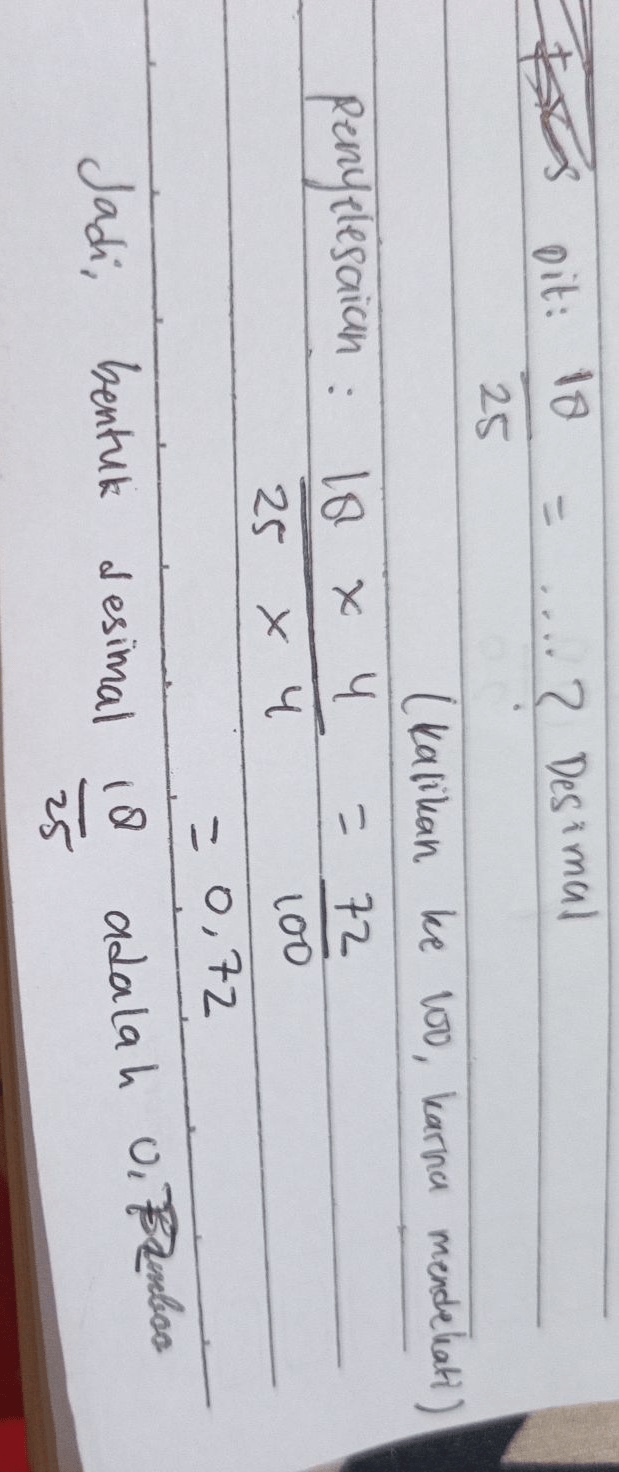 Dit: 18 = ....? Desimal
25
(kalikan ke 100, karna mendekati)
Penyelesaian : 18 x 4 = 72
25 x 4 100
= 0,72
Jadi, bentuk desimal 18 adalah 0,72
25